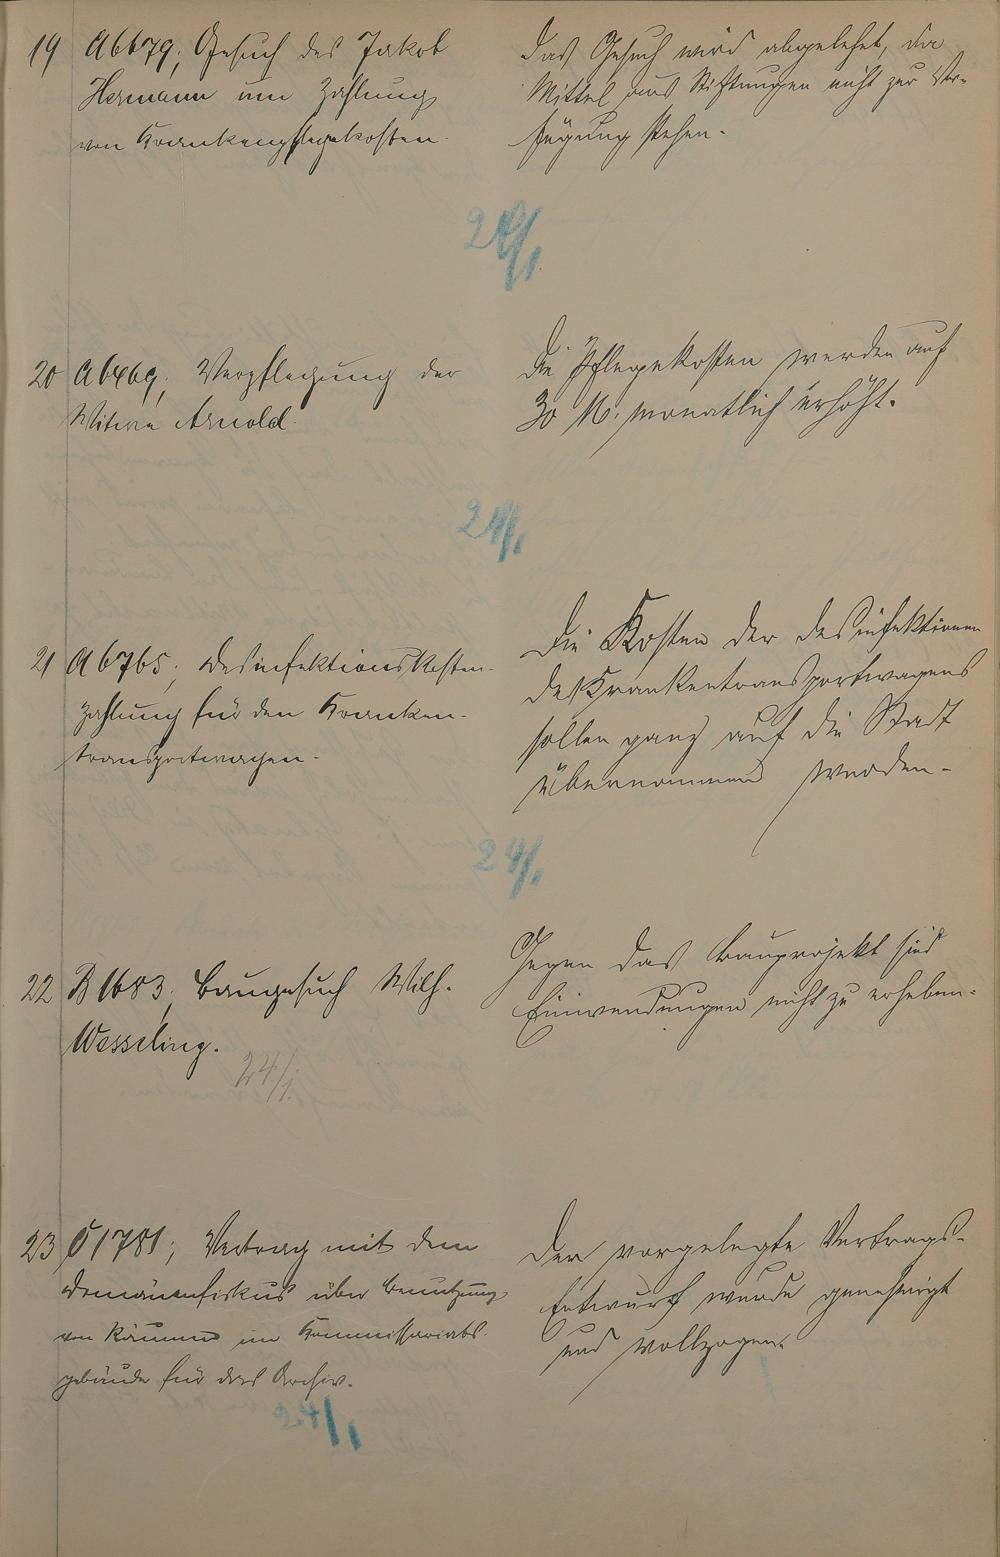 19 A 6679; Gesuch des Jakob
Hermann um Zahlung
von Krankenpflegekosten.
Das Gesuch wird abgelehnt, da
Mittel aus Stiftungen nicht zur Ver-
fügung stehen.
24/1
20 A 6469; Verpflegung der
Witwe Arnold.
Die Pflegekosten werden auf
30 M. monatlich erhöht.
24/1
21 A 6765; Desinfektionskosten-
zahlung für den Kranken-
transportwagen.
Die Kosten der Desinfektionen
des Krankentransportwagens
sollen ganz auf die Stadt
übernommen werden.
24/1
22 B 1683; Baugesuch Wilh.
Wesseling.
24/1
Gegen das Bauprojekt sind
Einwendungen nicht zu erheben.
23 C 1781; Vertrag mit dem
Domänenfiskus über Benutzung
von Räumen im Kommissariats-
gebäude für das Archiv.
24/1
Der vorgelegte Vertrags-
Entwurf wurde genehmigt
und vollzogen.